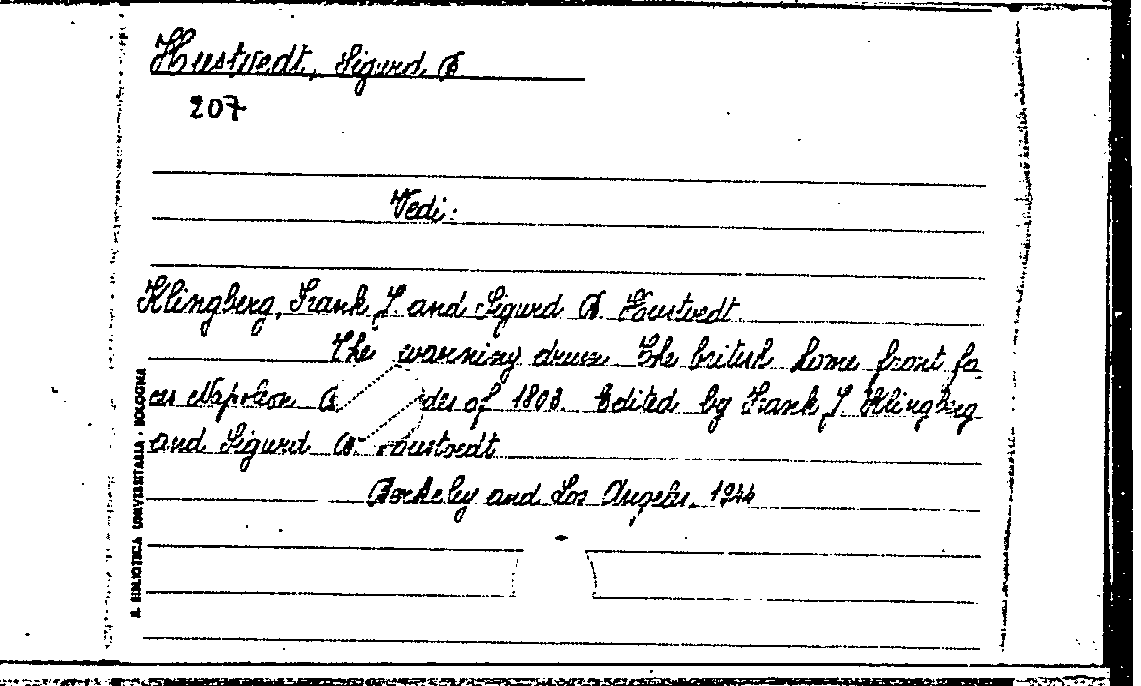 Hustvedt, Sigurd B
207
Vedi:
Klingberg, Frank J. and Sigurd B. Houstvedt.
The warning drum. The british home front fa
ces Napoleon B des of 1803. Edited by Frank J. Klingberg
and Sigurd B. Houstvedt
Berkeley and Los Angeles. 1944
R. BIBLIOTECA UNIVERSITARIA - BOLOGNA